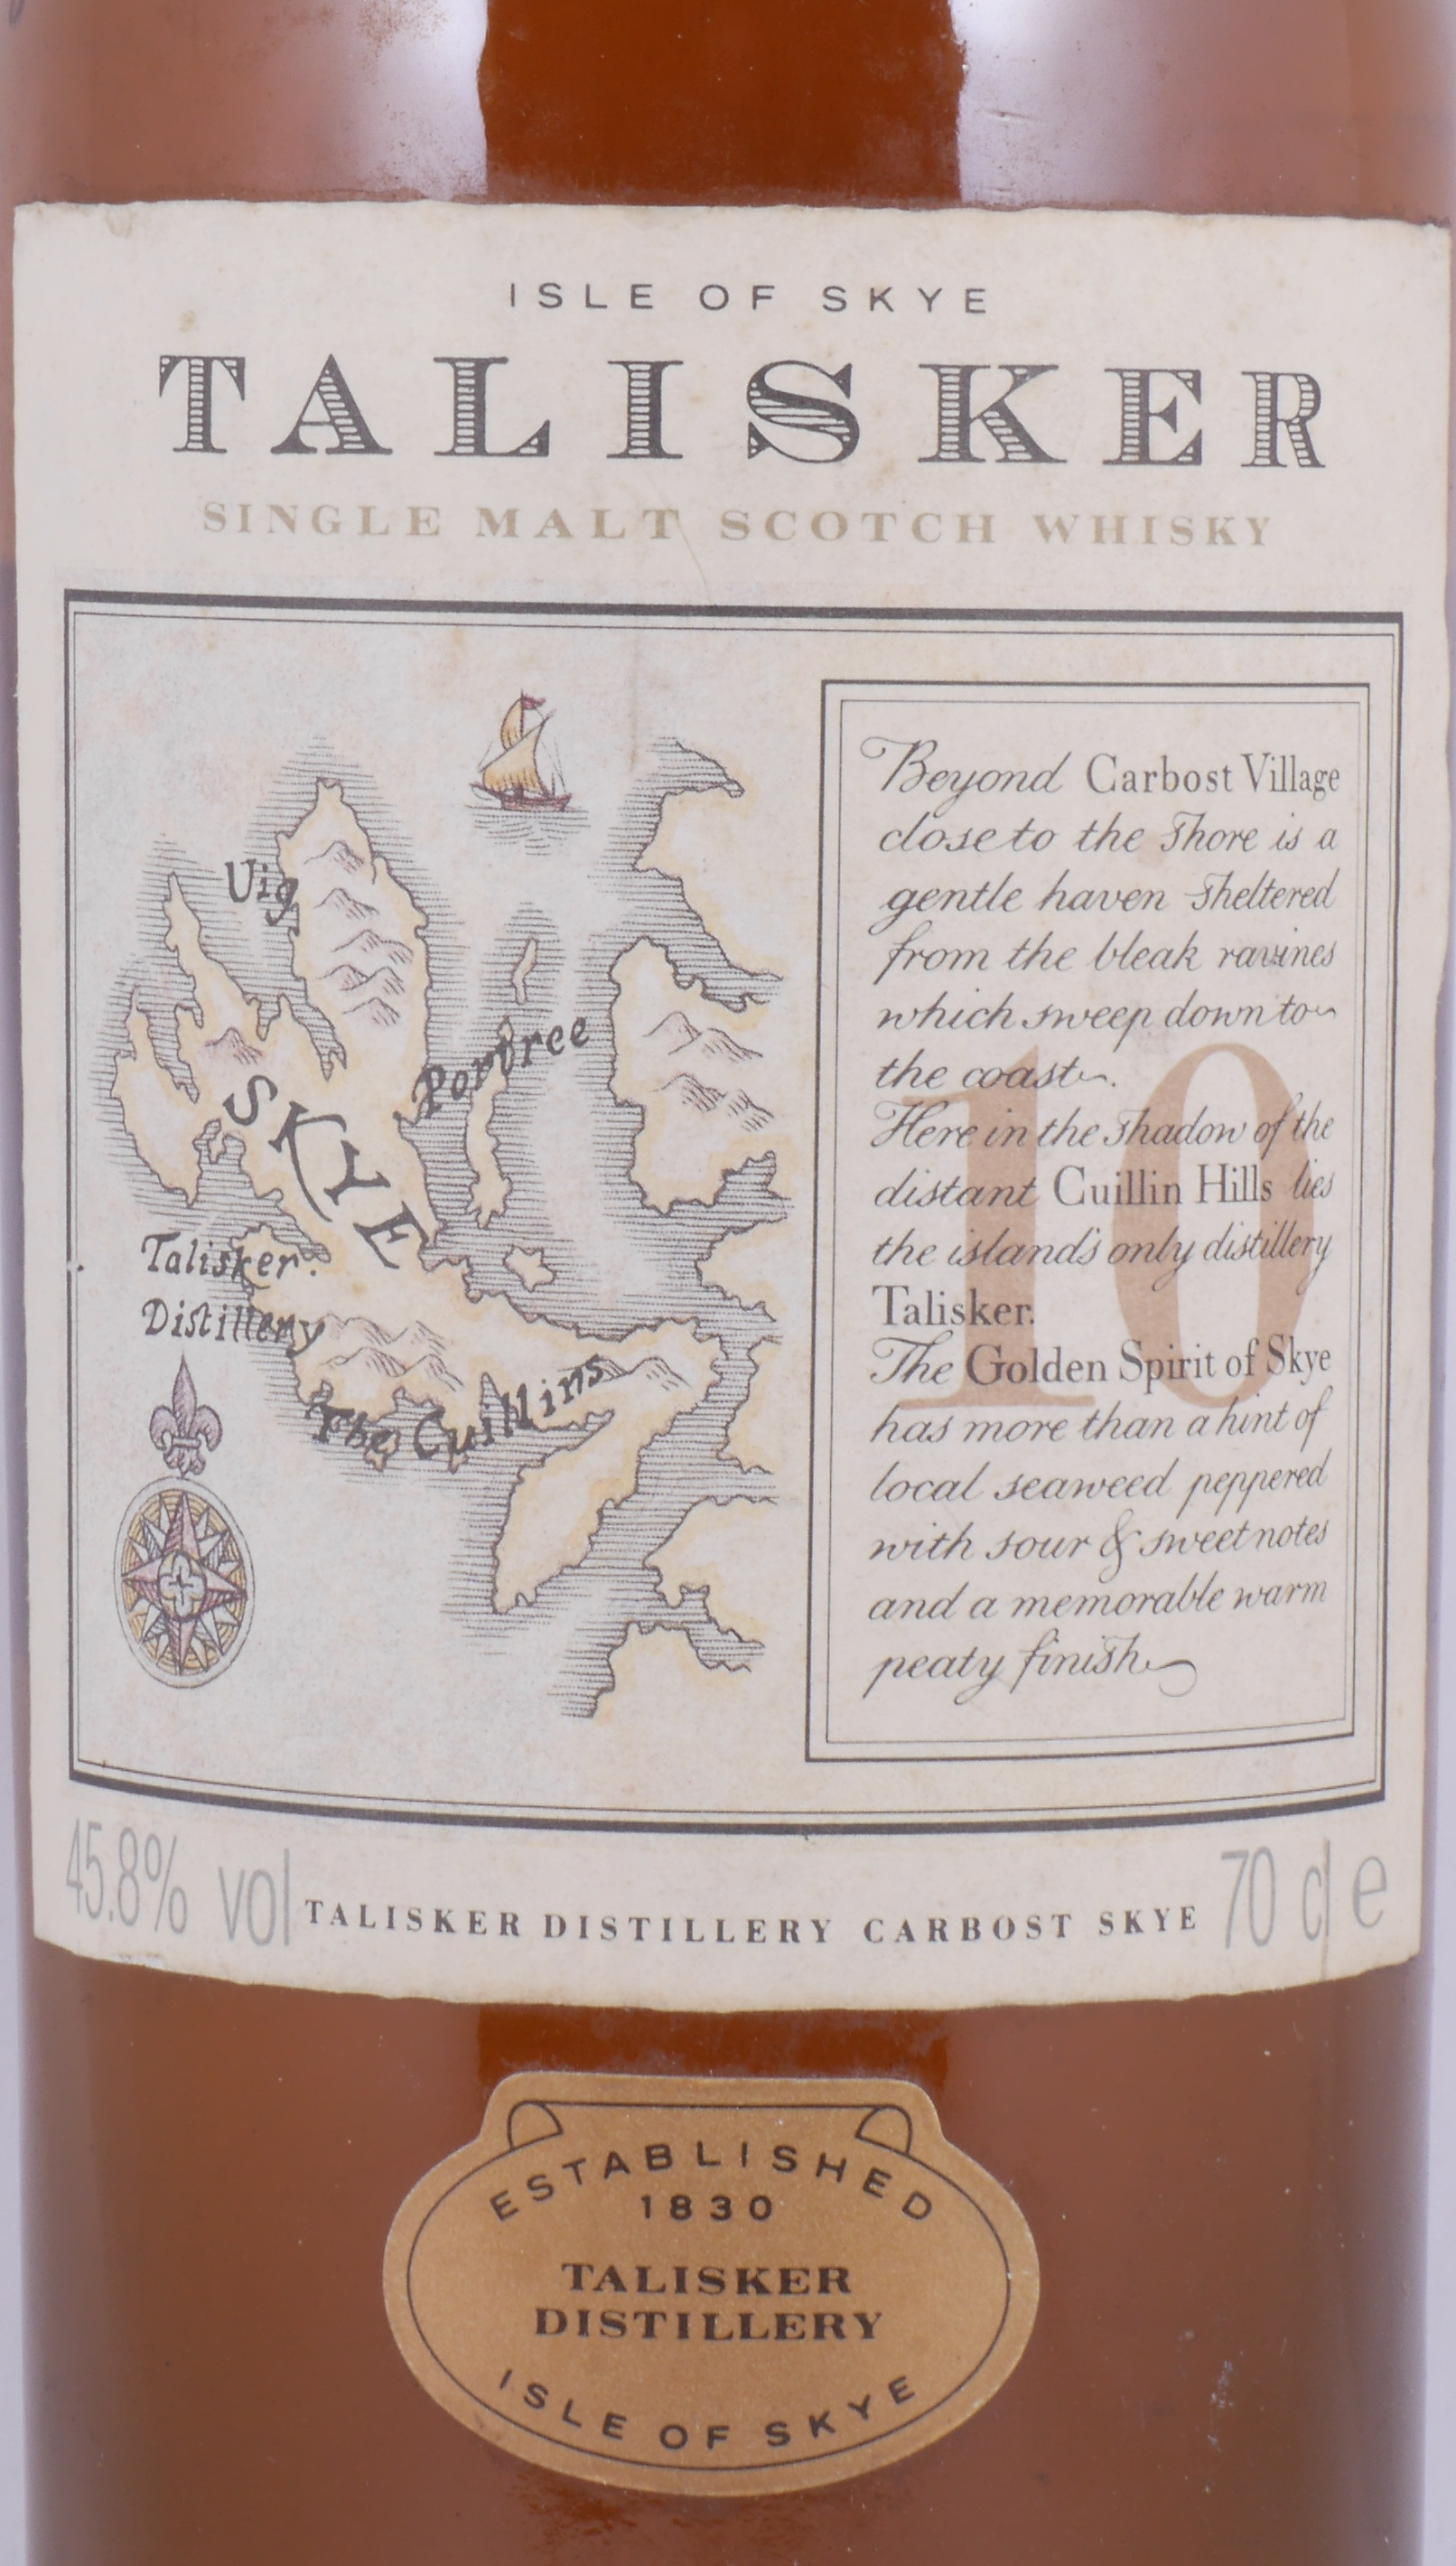 ISLE OF SKYE
TALISKER
SINGLE MALT SCOTCH WHISKY
Uig
Portree
SKYE
Talisker
Distillery
The Cuillins
10
Beyond Carbost Village
close to the shore is a
gentle haven sheltered
from the bleak ravines
which sweep down to
the coast.
Here in the shadow of the
distant Cuillin Hills lies
the island's only distillery
Talisker.
The Golden Spirit of Skye
has more than a hint of
local seaweed peppered
with sour & sweet notes
and a memorable warm
peaty finish
45.8% vol
TALISKER DISTILLERY CARBOST SKYE
70 cl e
ESTABLISHED
1830
TALISKER
DISTILLERY
ISLE OF SKYE